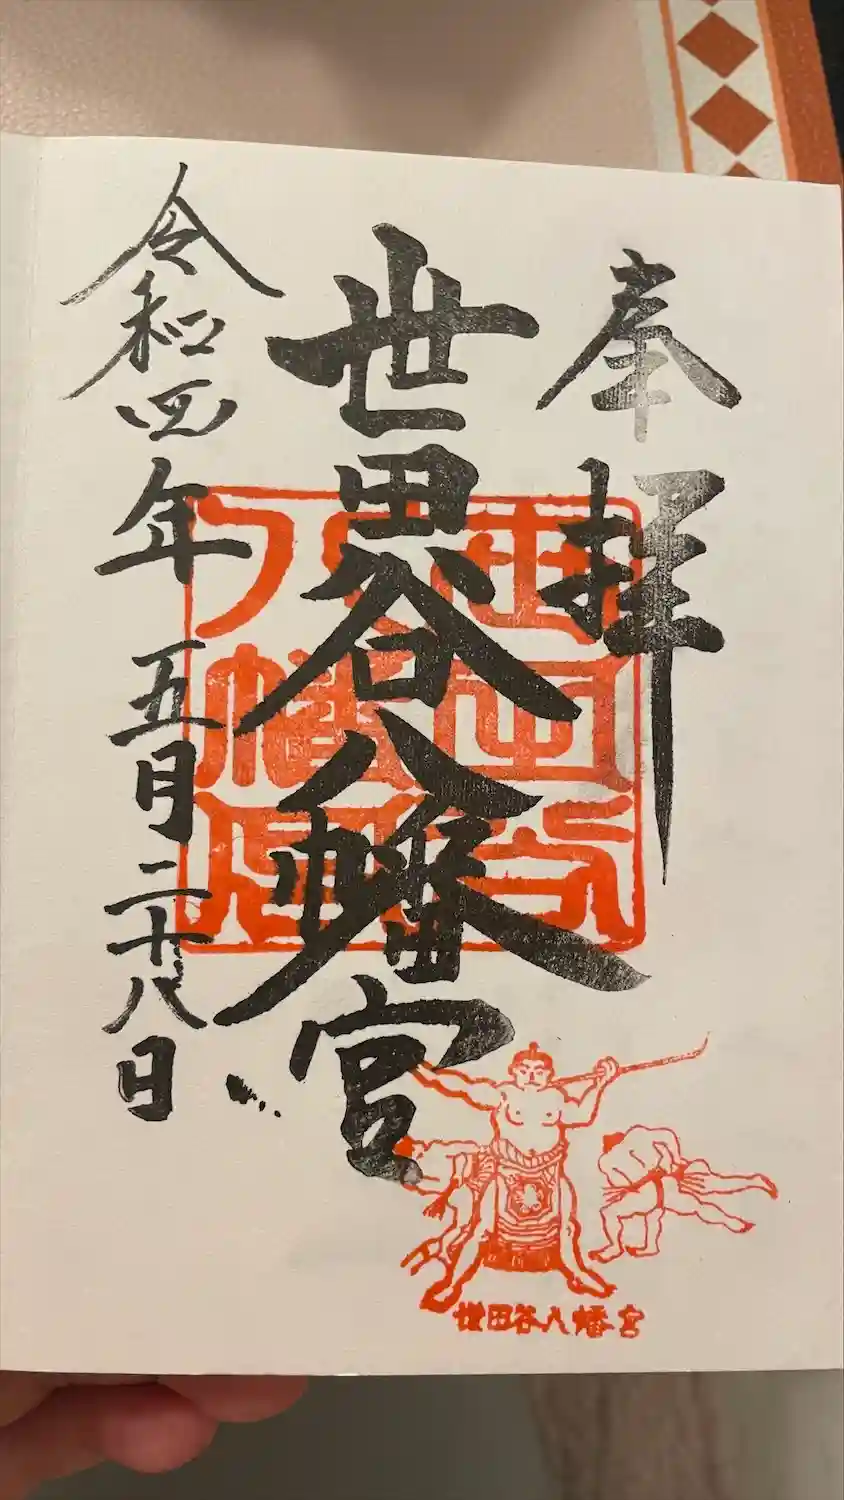 奉拝
世田谷八幡宮
令和四年五月二十八日
世田谷
八幡宮
世田谷八幡宮